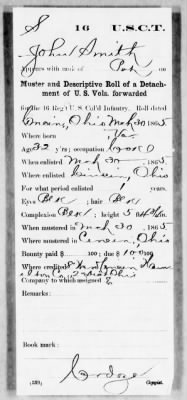 S 16 U.S.C.T.
John Smith
Appears with rank of Pvt on
Muster and Descriptive Roll of a Detach-
ment of U. S. Vols. forwarded
for the 16 Reg't U. S. Col'd Infantry. Roll dated
Cincin, Ohio Mch 30 1865
Where born Va
Age 32 y'rs; occupation
When enlisted Mch 30 1865
Where enlisted Cincin, Ohio
For what period enlisted 1 years.
Eyes Blk; hair Blk
Complexion Blk; height 5 ft. in.
When mustered in Mch 30 1865
Where mustered in Cincin, Ohio
Bounty paid $ 100; due $ 100
Where credited Ham
ilton Co. Ohio
Company to which assigned
Remarks:
Book mark:
(339) Copyist.